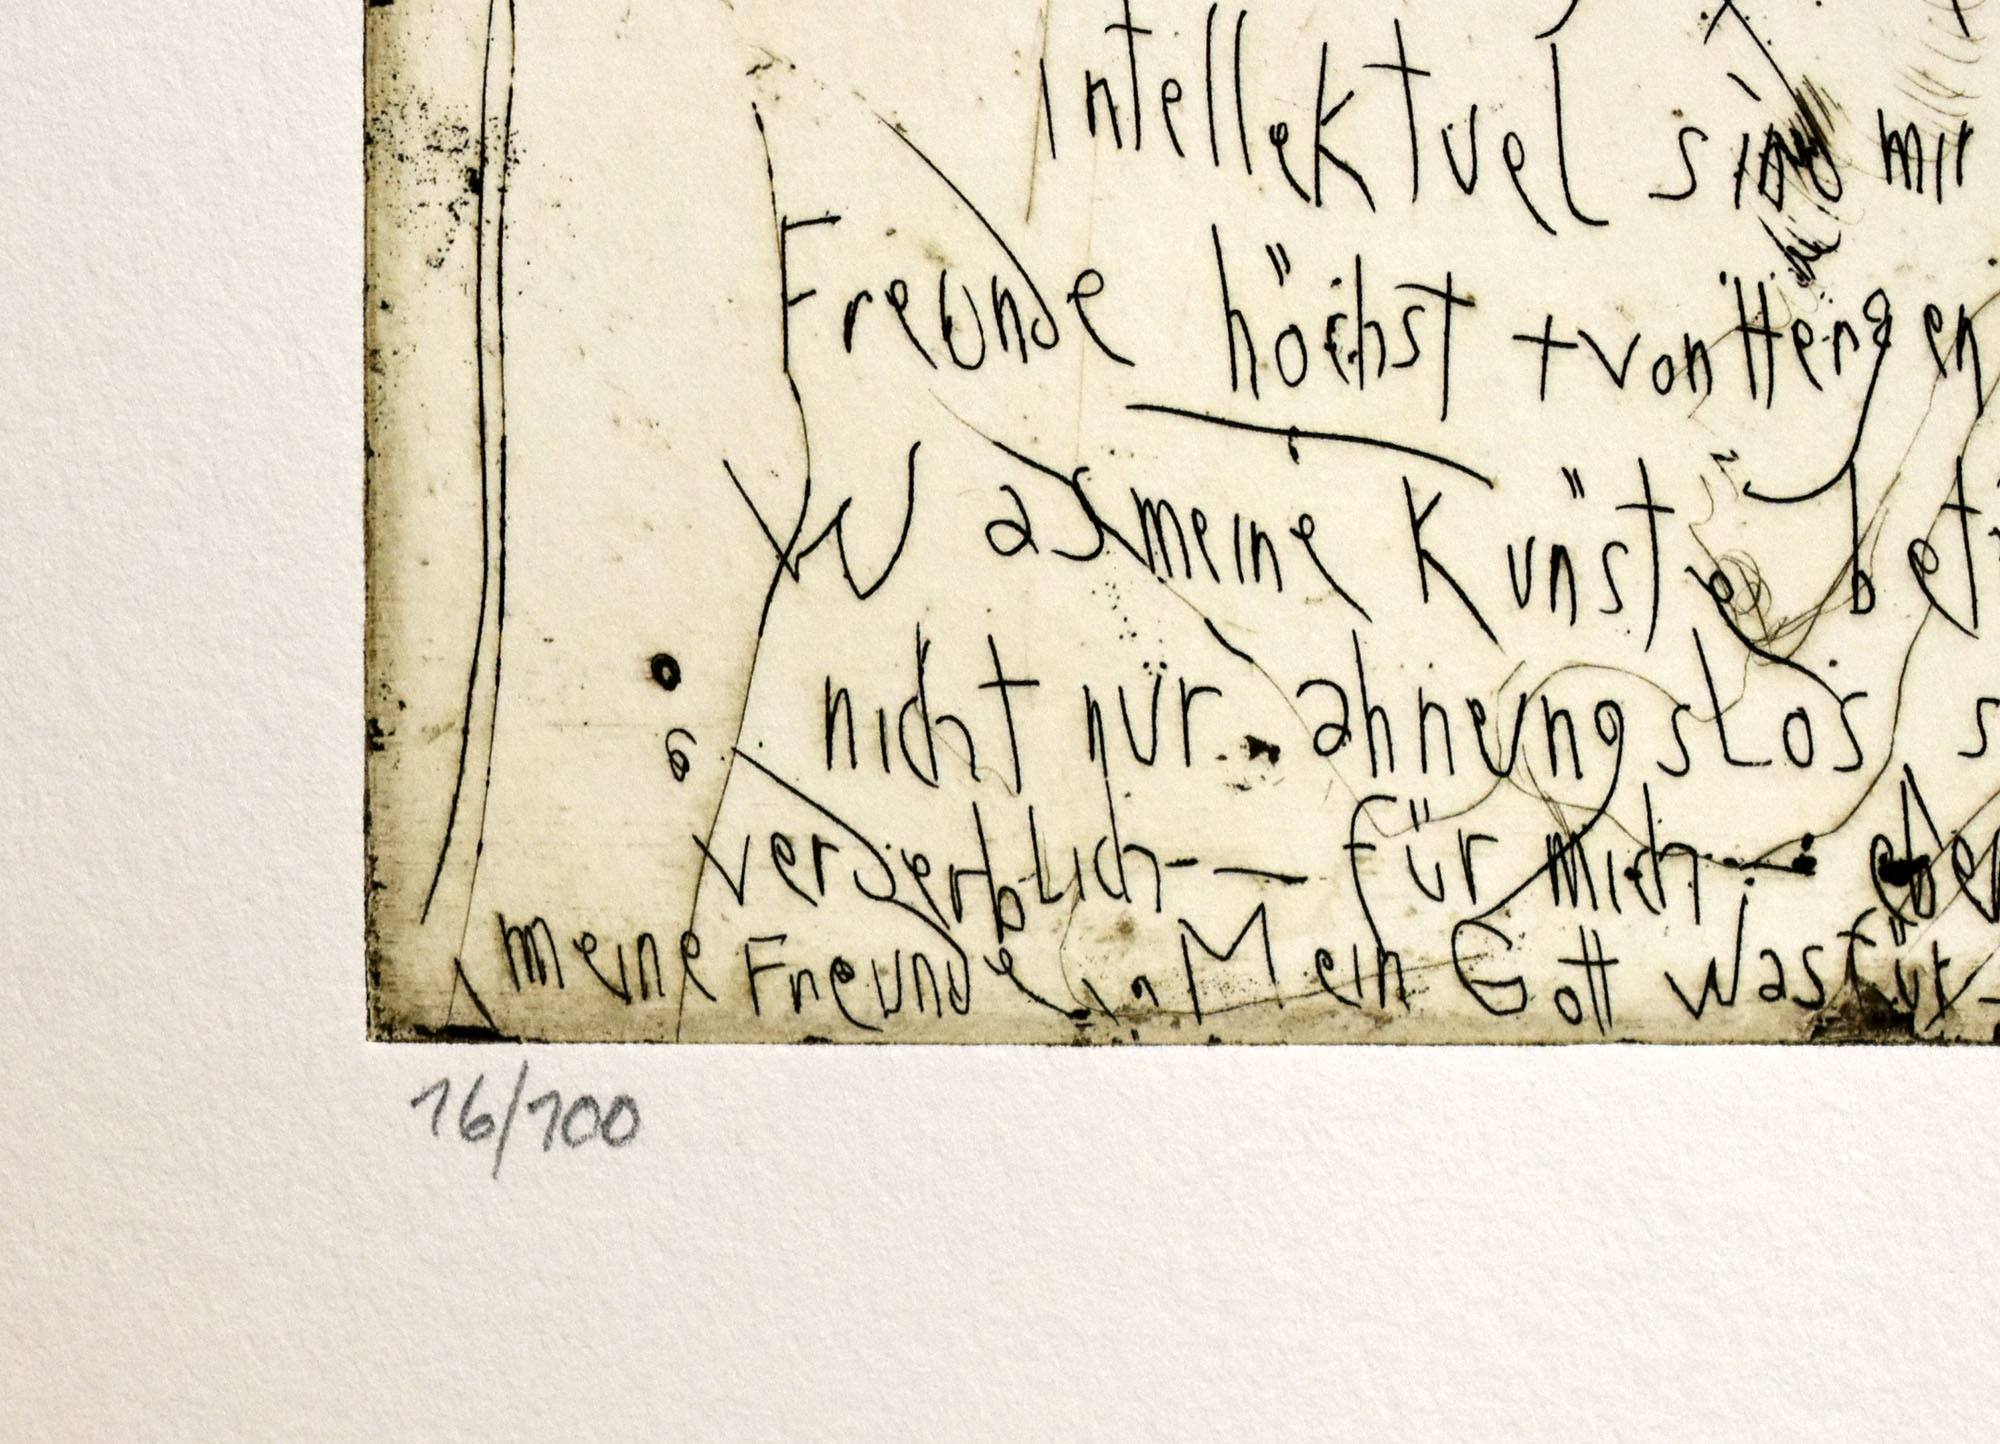 intellektuel sind mir
Freunde höchst + von Herzen
Was meine Künste betr
nicht nur ahnungslos, s
verderblich - — für mich - — eben
meine Freunde Mein Gott was für
16/100